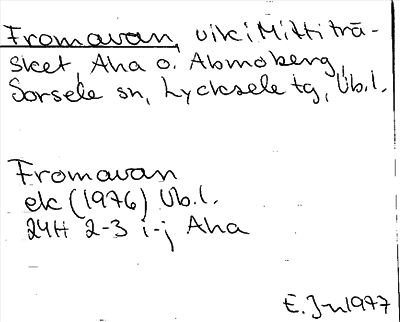 Fromavan, vik i Mittiträ-
sket, Aha o. Abmoberg,
Sorsele sn, Lycksele tg, Vb.l.
Fromavan
ek (1976) Vb.l.
24H 2-3 i-j Aha
E. J-n 1977